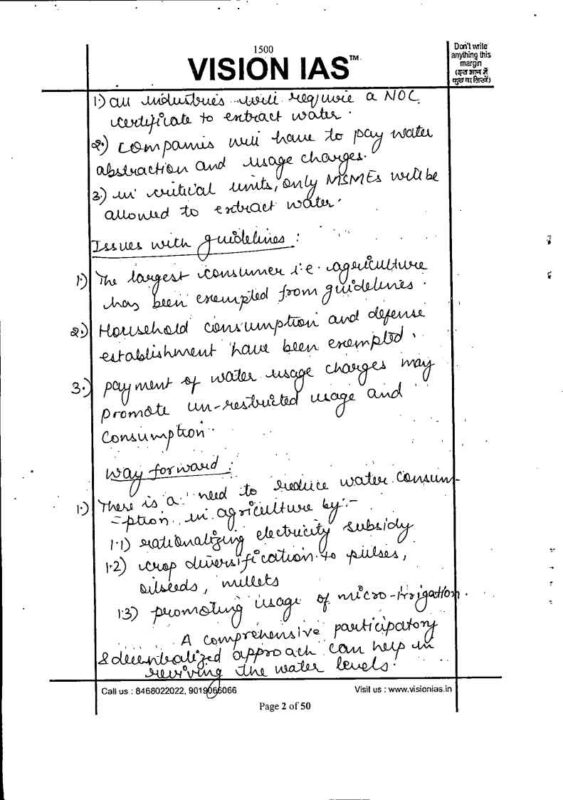 1500
VISION IAS™
Don't write
anything this
margin
(इस भाग में
कुछ ना लिखें)
1.) all industries will require a NOC
certificate to extract water.
2.) Companis will have to pay water
abstraction and usage charges.
3.) in critical units, only MSMEs will be
allowed to extract water.
Issues with guidelines :
1.) The largest consumer i.e. agriculture
has been exempted from guidelines.
2.) Household consumption and defense
establishment have been exempted.
3.) payment of water usage charges may
promote un-restricted usage and
consumption.
way forward :
1.) There is a need to reduce water consum-
-ption in agriculture by:-
1.1) rationalizing electricity subsidy
1.2) crop diversification to pulses,
oilseeds, millets
1.3) promoting usage of micro-irrigation.
A comprehensive participatory
& decentralized approach can help in
reviving the water levels.
Call us : 8468022022, 9019066066
Visit us : www.visionias.in
Page 2 of 50